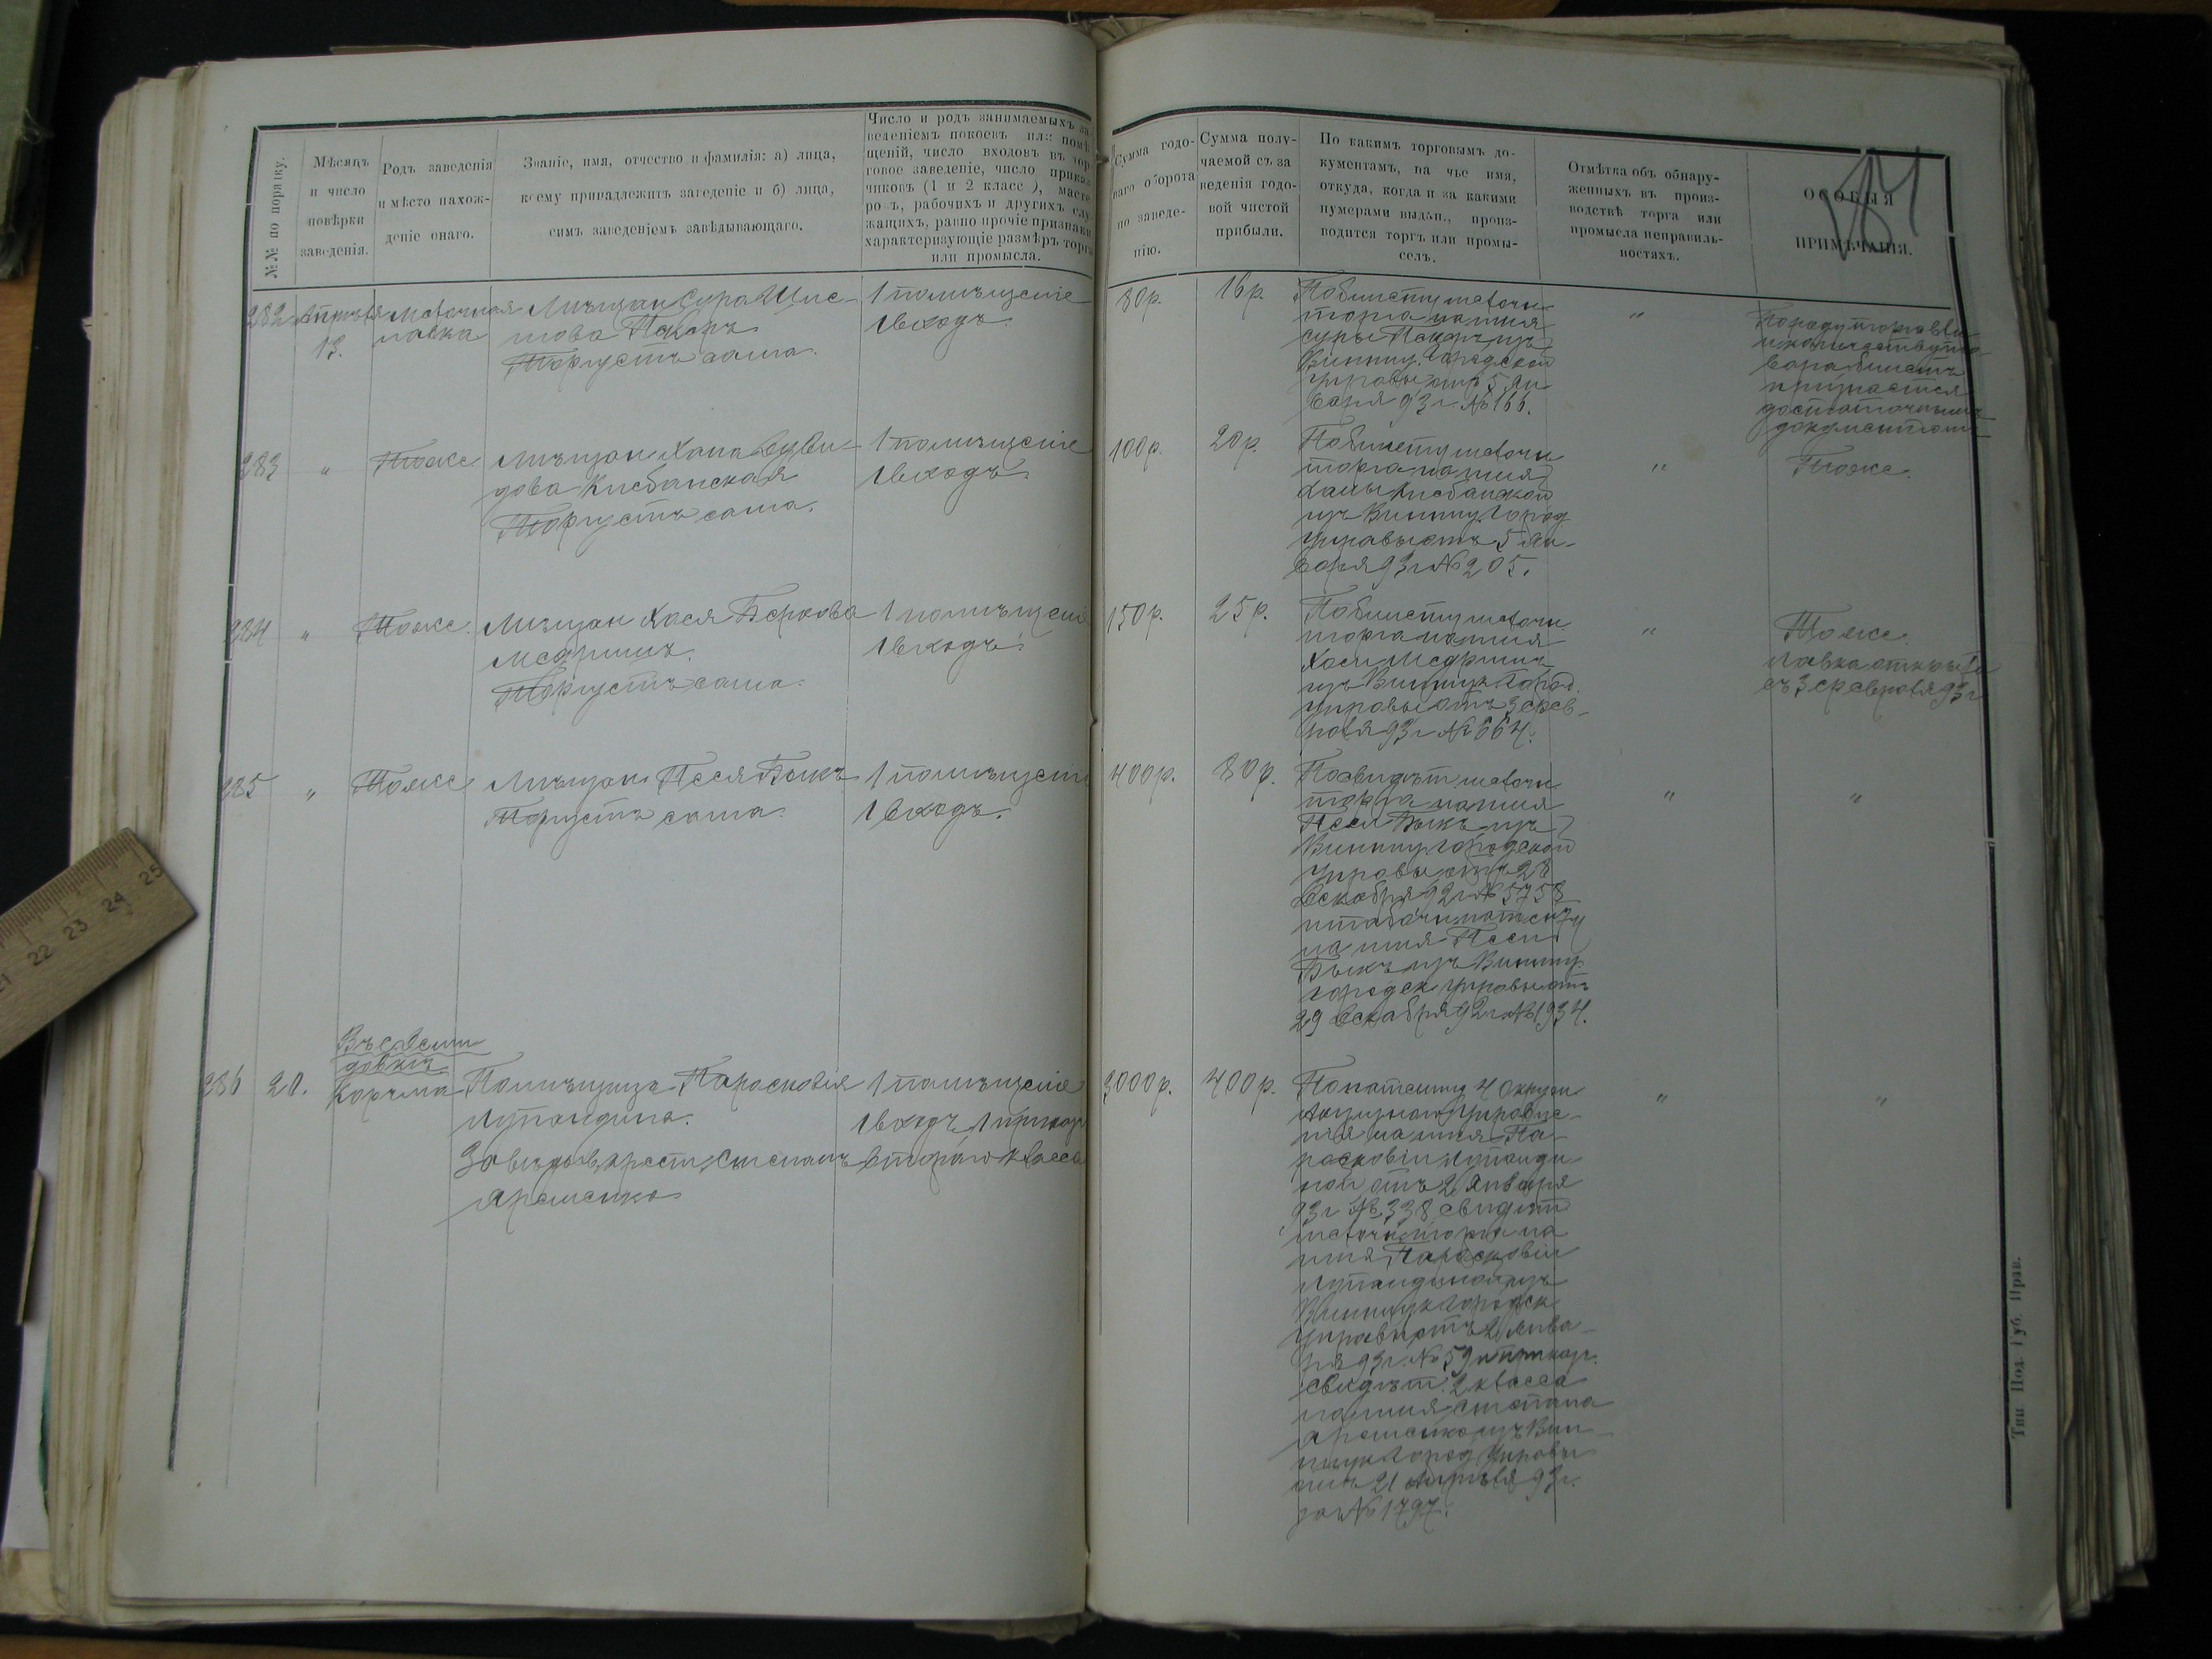 №№ по порядку.
Мѣсяцъ
и число
повѣрки
заведенія.
Родъ заведенія
и мѣсто нахож-
деніе онаго.
Званіе, имя, отчество и фамилія: а) лица,
коему принадлежитъ заведеніе и б) лица,
симъ заведеніемъ завѣдывающаго.
Число и родъ занимаемыхъ за-
веденіемъ покоевъ или помѣ-
щеній, число входовъ въ тор-
говое заведеніе, число приказ-
чиковъ (1 и 2 класс), масте-
ровъ, рабочихъ и другихъ слу-
жащихъ, равно прочіе признаки
характеризующіе размѣръ торга
или промысла.
Сумма годо-
ваго оборота
по заведе-
нію.
Сумма полу-
чаемой съ за
веденія годо-
вой чистой
прибыли.
По какимъ торговымъ до-
кументамъ, на чье имя,
откуда, когда и за какими
нумерами выдан., произ-
водится торгъ или промы-
селъ.
Отмѣтка объ обнару-
женныхъ въ произ-
водствѣ торга или
промысла неправиль-
ностяхъ.
ОСОБЫЯ
ПРИМѢЧАНІЯ.
282
Апрѣля
13.
Мелочная
лавка
Мѣщан Сура
Торгуетъ сама.
1 помѣщеніе
1 входъ.
80 р.
16 р.
По билету мелочн
торга на имя
Суры
Винниц. Городской
Управы отъ 5 Ян
варя 93 г. № 166.
"
По роду торговли
и количеству то-
вара билетъ
признается
достаточнымъ
документомъ
283
"
Тоже
Мѣщан Хана Дуви-
дова Кисбанская
Торгуетъ сама.
1 помѣщеніе
1 входъ.
100 р.
20 р.
По билету мелочн
торга на имя
Ханы Кисбанской
изъ Винниц. Город
Управы отъ 5 Ян-
варя 93 г № 205.
"
Тоже.
284
"
Тоже.
Мѣщан Хася Беркова
Медришъ.
Торгуетъ сама.
1 помѣщеніе
1 входъ.
150 р.
25 р.
По билету мелочн
торга на имя
Хаси Медришъ
изъ Винниц Город.
Управы отъ 3 Фев-
раля 93 г № 664.
"
Тоже.
Лавка открыта
съ 3 Февраля 93 г
285
"
Тоже
Мѣщан Песя Быкъ
Торгуетъ сама.
1 помѣщеніе
1 входъ.
400 р.
80 р.
По свидѣт мелочн
торга на имя
Песи Быкъ изъ
Винниц Городской
Управы отъ 28
Декабря 92 г № 5758
и табачн патенту
на имя Песи
Быкъ изъ Винниц
Городск Управы отъ
29 Декабря 92 г № 1934.
"
"
286
20.
Корчма
Помѣщица Парасковія
Лупандина.
Завѣдыв. крест. Степанъ
Яременко
1 помѣщеніе
1 входъ, 1 приказ
втораго класса
3000 р.
400 р.
По патенту 4 Округа
Акцизнаго Управле-
нія на имя Па-
расковіи Лупанди
ной отъ 2 Января
93 г № 338 свидѣт
мелочн. торга на
имя Парасковіи
Лупандиной изъ
Винниц Городск
Управы отъ 2 Янва-
ря 93 г. № 59 и приказ.
свидѣт. 2 класса
на имя Степана
Яременко изъ Вин-
ниц Город Управы
отъ 21 Апрѣля 93 г.
за № 1797.
"
"
Тип. Под. Губ. Прав.
21 22 23 24 25